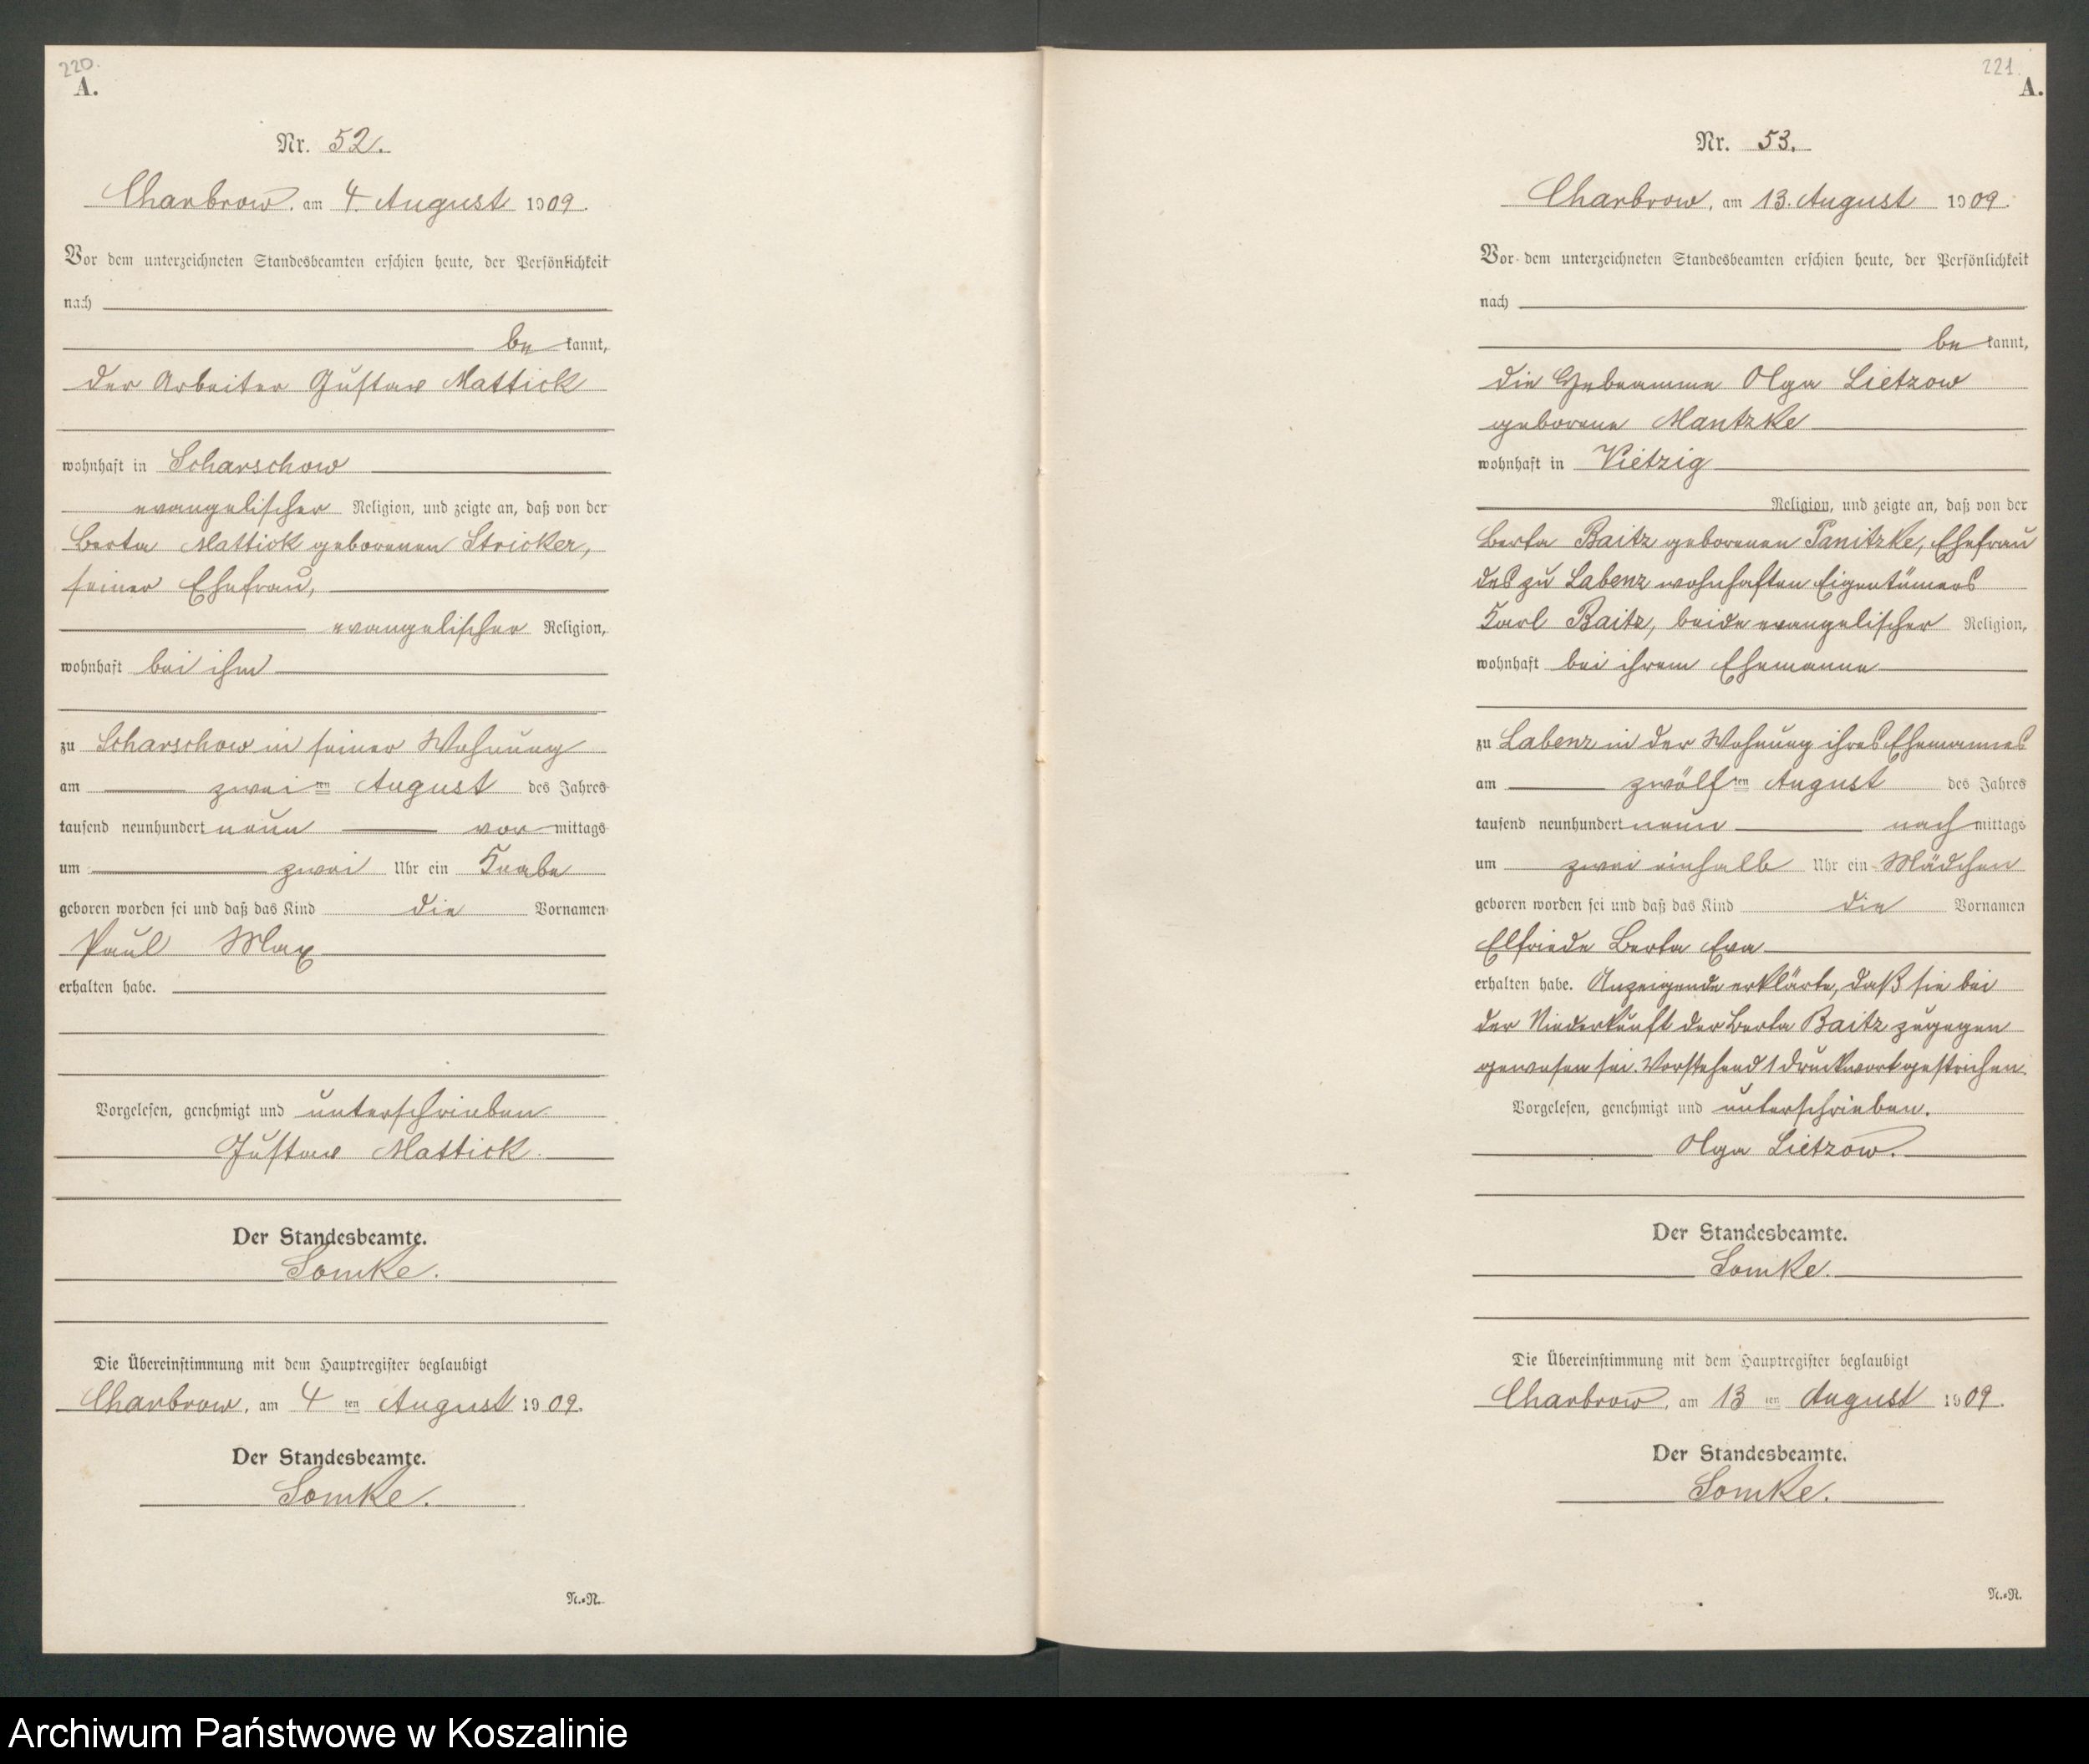 220.
A.
Nr. 52.
Charbrow, am 4. August 1909.
Vor dem unterzeichneten Standesbeamten erschien heute, der Persönlichkeit
nach
be kannt,
der Arbeiter Gustav Mattick
wohnhaft in Scharschow
evangelischer Religion, und zeigte an, daß von der
Berta Mattick geborenen Stricker,
seiner Ehefrau,
evangelischer Religion,
wohnhaft bei ihm
zu Scharschow in seiner Wohnung
am zwei ten August des Jahres
tausend neunhundert neun vor mittags
um zwei Uhr ein Knabe
geboren worden sei und daß das Kind die Vornamen
Paul Max
erhalten habe.
Vorgelesen, genehmigt und unterschrieben
Gustav Mattick.
Der Standesbeamte.
Lomke.
Die Übereinstimmung mit dem Hauptregister beglaubigt
Charbrow, am 4 ten August 1909.
Der Standesbeamte.
Lomke.
N.=N.
221.
A.
Nr. 53.
Charbrow, am 13. August 1909.
Vor dem unterzeichneten Standesbeamten erschien heute, der Persönlichkeit
nach
be kannt,
die Hebeamme Olga Lietzow
geborene Mantzke
wohnhaft in Vietzig
Religion, und zeigte an, daß von der
Berta Baitz geborenen Panitzke, Ehefrau
des zu Labenz wohnhaften Eigentümers
Karl Baitz, beide evangelischer Religion,
wohnhaft bei ihrem Ehemanne
zu Labenz in der Wohnung ihres Ehemannes
am zwölf ten August des Jahres
tausend neunhundert neun nach mittags
um zwei einhalb Uhr ein Mädchen
geboren worden sei und daß das Kind die Vornamen
Elfriede Berta Eva
erhalten habe. Anzeigende erklärte, daß sie bei
der Niederkunft der Berta Baitz zugegen
gewesen sei. Vorstehend 1 Druckwort gestrichen.
Vorgelesen, genehmigt und unterschrieben.
Olga Lietzow.
Der Standesbeamte.
Lomke.
Die Übereinstimmung mit dem Hauptregister beglaubigt
Charbrow, am 13 ten August 1909.
Der Standesbeamte.
Lomke.
N.=N.
Archiwum Państwowe w Koszalinie